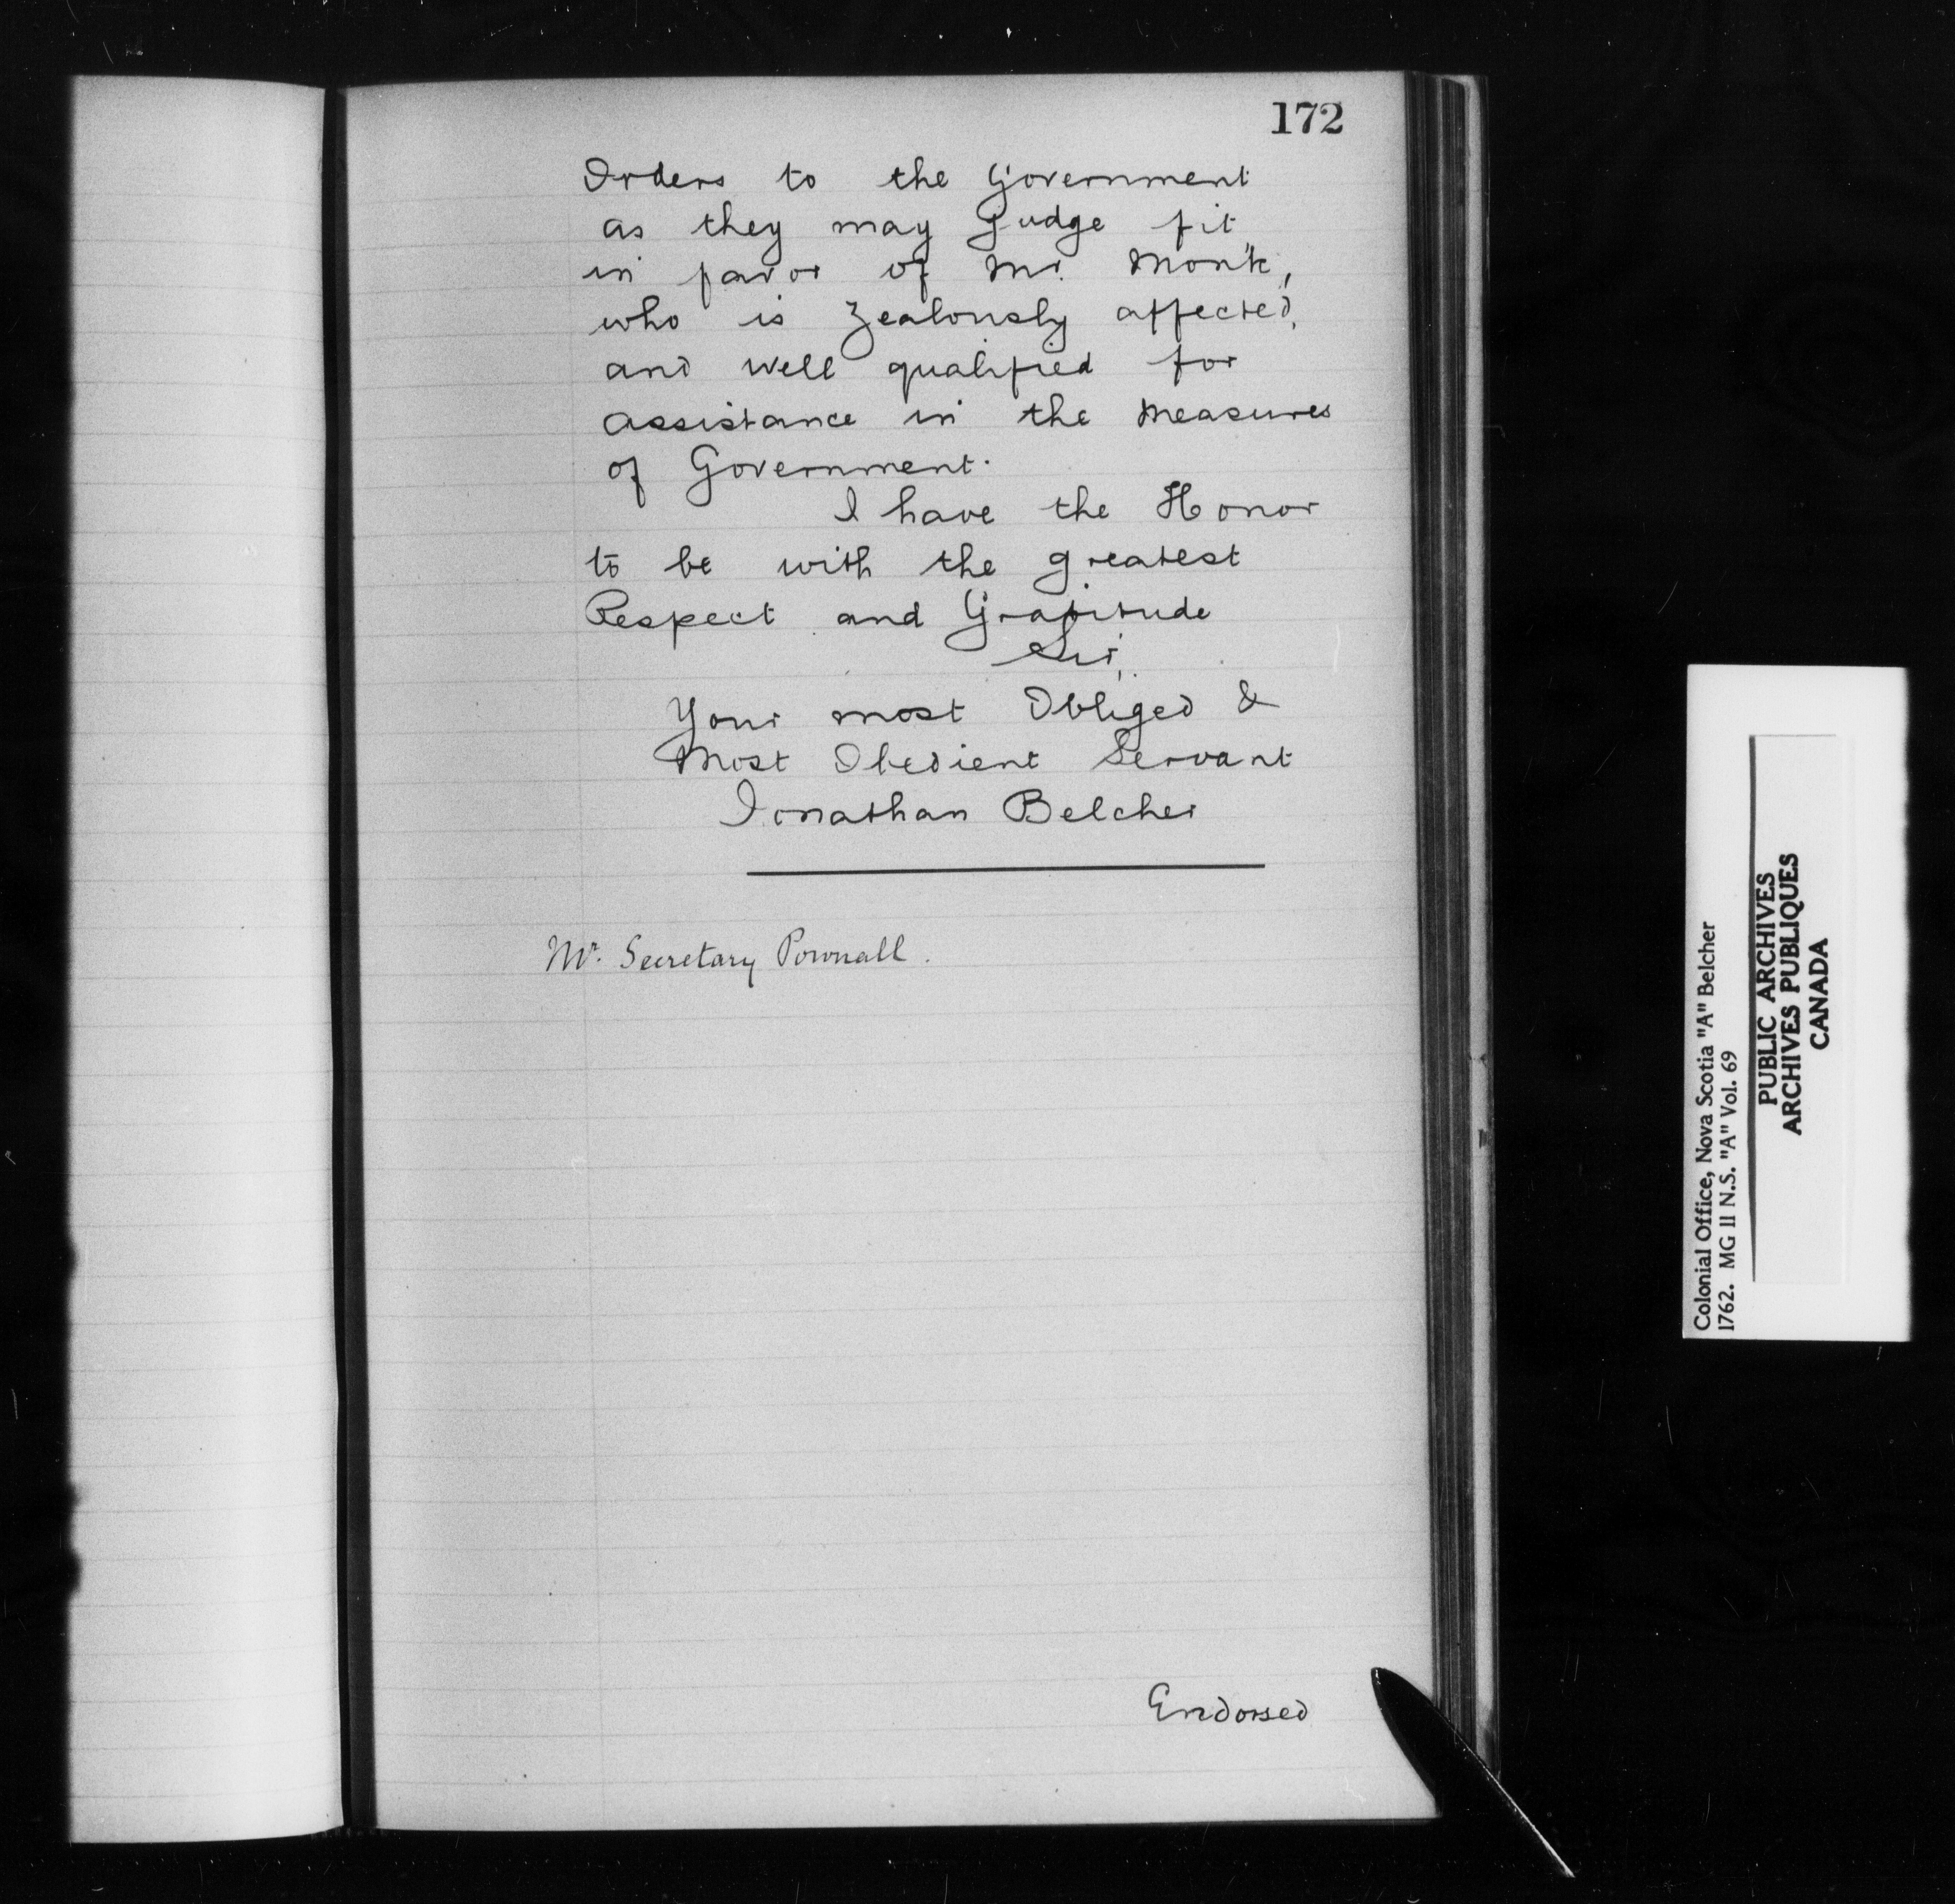 172
Orders to the Government
as they may Judge fit
in favor of Mr. Monk,
who is Zealously affected,
and well qualified for
assistance in the Measures
of Government.
I have the Honor
to be with the greatest
Respect and Gratitude
Sir,
Your most Obliged &
Most Obedient Servant
Jonathan Belcher
Mr. Secretary Pownall.
Endorsed
Colonial Office, Nova Scotia "A" Belcher
1762. MG 11 N.S. "A" Vol. 69
PUBLIC ARCHIVES
ARCHIVES PUBLIQUES
CANADA